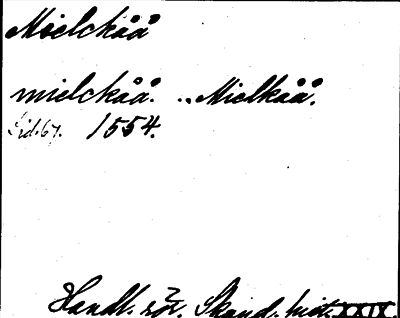 Mielckåå
mielckåå. „Mielkåå.
Sid. 67. 1554.
Handl. rör. Skand. hist. XXIX.